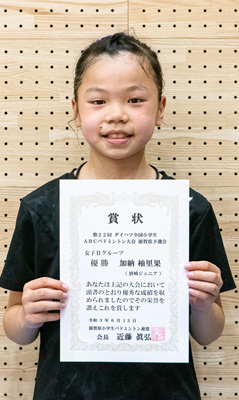 賞状
第22回 ダイハツ全国小学生
ABCバドミントン大会 滋賀県予選会
女子Bグループ
優勝 加納 柚里果
(唐崎ジュニア)
あなたは上記の大会において
頭書のとおり優秀な成績を収
められましたのでその栄誉を
讃えこれを賞します
令和3年6月13日
滋賀県小学生バドミントン連盟
会長 近藤 眞弘